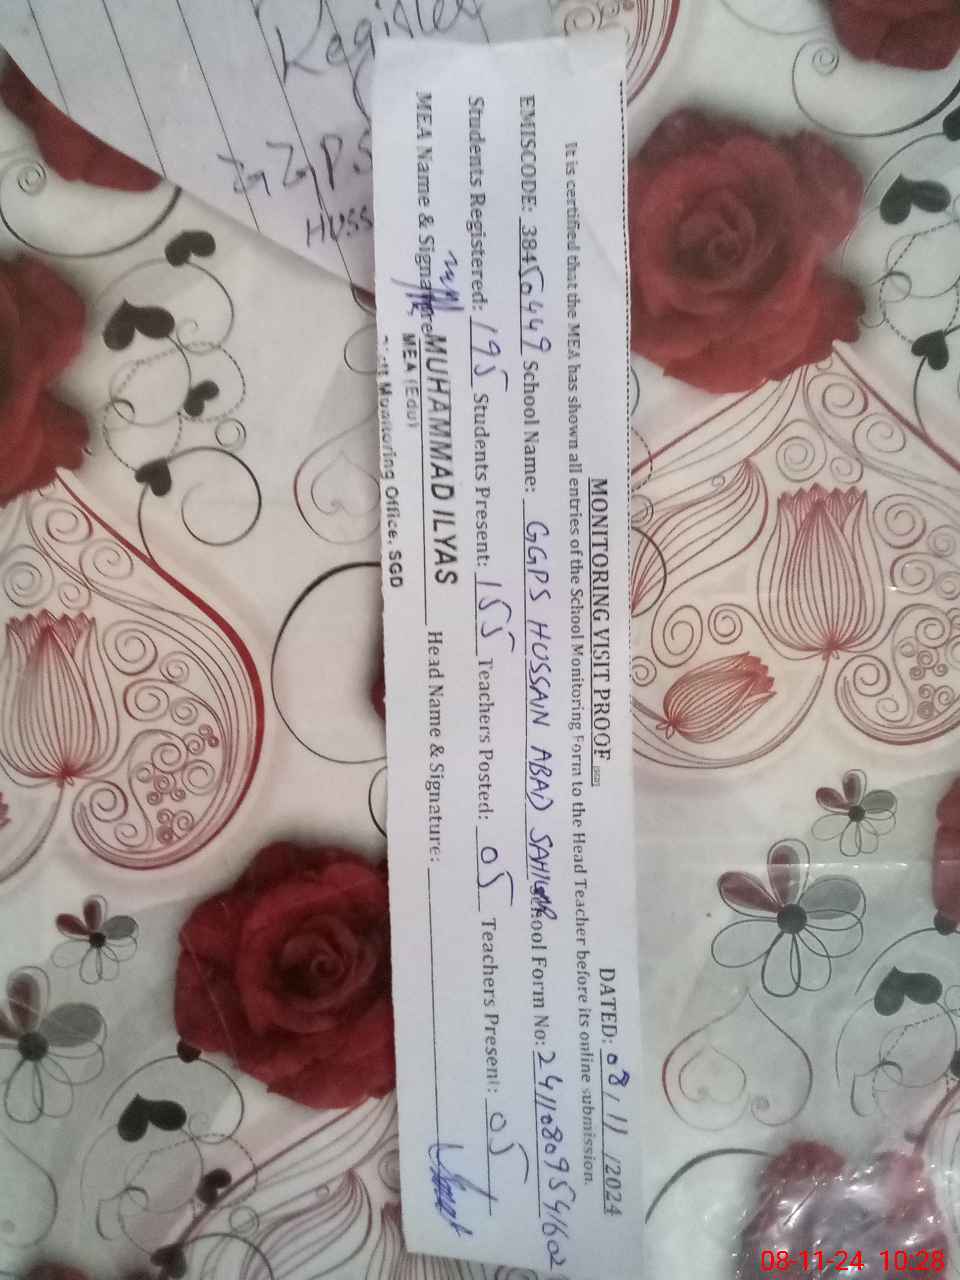 Register
PS
HUSS
MONITORING VISIT PROOF DATED: 08/11/2024
It is certified that the MEA has shown all entries of the School Monitoring Form to the Head Teacher before its online submission.
EMISCODE: 38450449 School Name: GGPS HUSSAIN ABAD School Form No: 24110809541602
Students Registered: 195 Students Present: 155 Teachers Posted: 05 Teachers Present: 05
MEA Name & Signature MUHAMMAD ILYAS Head Name & Signature:
MEA (Edu)
Monitoring Office, SGD
08-11-24 10:28